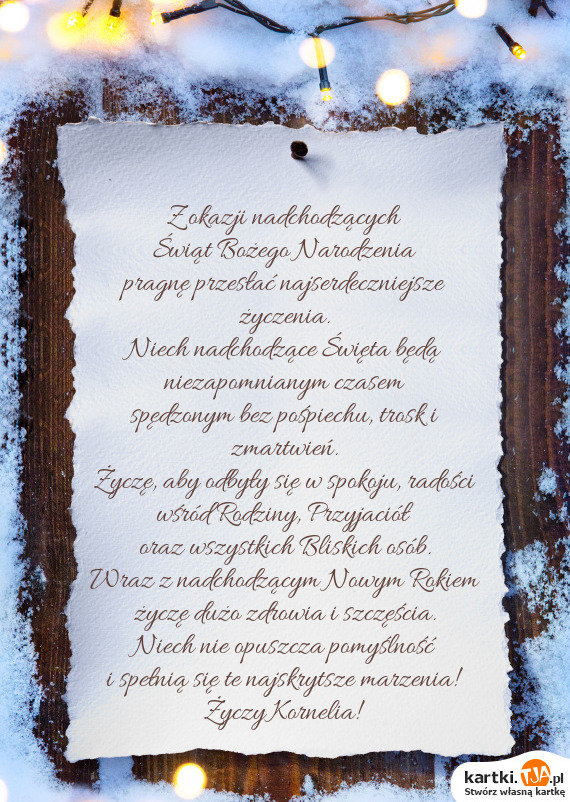 Z okazji nadchodzących
Świąt Bożego Narodzenia
pragnę przesłać najserdeczniejsze
życzenia.
Niech nadchodzące Święta będą
niezapomnianym czasem
spędzonym bez pośpiechu, trosk i
zmartwień.
Życzę, aby odbyły się w spokoju, radości
wśród Rodziny, Przyjaciół
oraz wszystkich Bliskich osób.
Wraz z nadchodzącym Nowym Rokiem
życzę dużo zdrowia i szczęścia.
Niech nie opuszcza pomyślność
i spełnią się te najskrytsze marzenia!
Życzy Kornelia!
kartki.TJA.pl
Stwórz własną kartkę